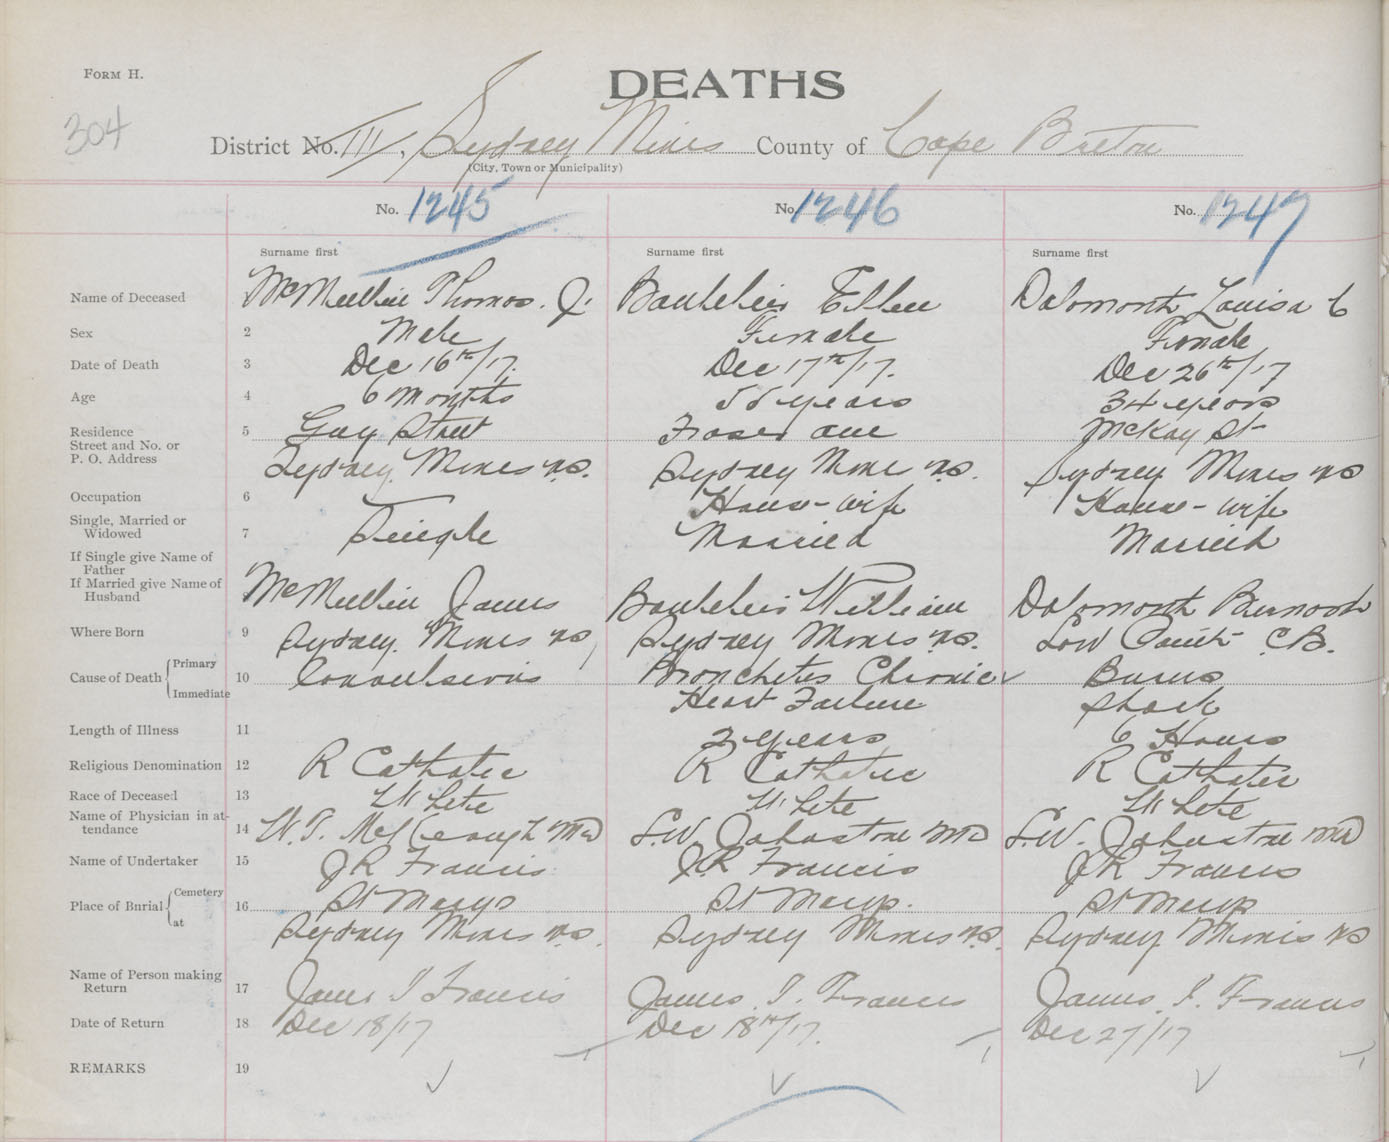 FORM H.
DEATHS
304
District No. III, Sydney Mines County of Cape Breton
(City, Town or Municipality)
No. 1245 No. 1246 No. 1247
Surname first Surname first Surname first
Name of Deceased McMullin Thomas. J. Ellen Louisa C
Sex 2 Male Female Female
Date of Death 3 Dec 16th/17. Dec 17th/17. Dec 26th/17
Age 4 6 Months 55 years 34 years
Residence 5 Guy Street Fraser ave McKay St
Street and No. or
P. O. Address Sydney Mines N.S. Sydney Mine N.S. Sydney Mines NS
Occupation 6 House-wife House-wife
Single, Married or
Widowed 7 Single Married Married
If Single give Name of
Father
If Married give Name of
Husband McMullin James William
Where Born 9 Sydney Mines NS, Sydney Mines N.S. Low Point C.B.
Cause of Death { Primary 10 Convulsions Bronchetes Chronic Burns
Immediate Heart Failure Shock
Length of Illness 11 2 years 6 Hours
Religious Denomination 12 R Catholic R Catholic R Catholic
Race of Deceased 13 White White White
Name of Physician in at-
tendance 14 W. T. McKeough MD L.W. Johnstone MD L.W. Johnstone MD
Name of Undertaker 15 JR Francis J.R Francis JR Francis
Place of Burial { Cemetery 16 St Marys St Marys. St Marys
at Sydney Mines N.S. Sydney Mines N.S. Sydney Mines NS
Name of Person making
Return 17 James I Francis James. I. Francis James. I. Francis
Date of Return 18 Dec 18/17 Dec 18th/17. Dec 27/17
REMARKS 19